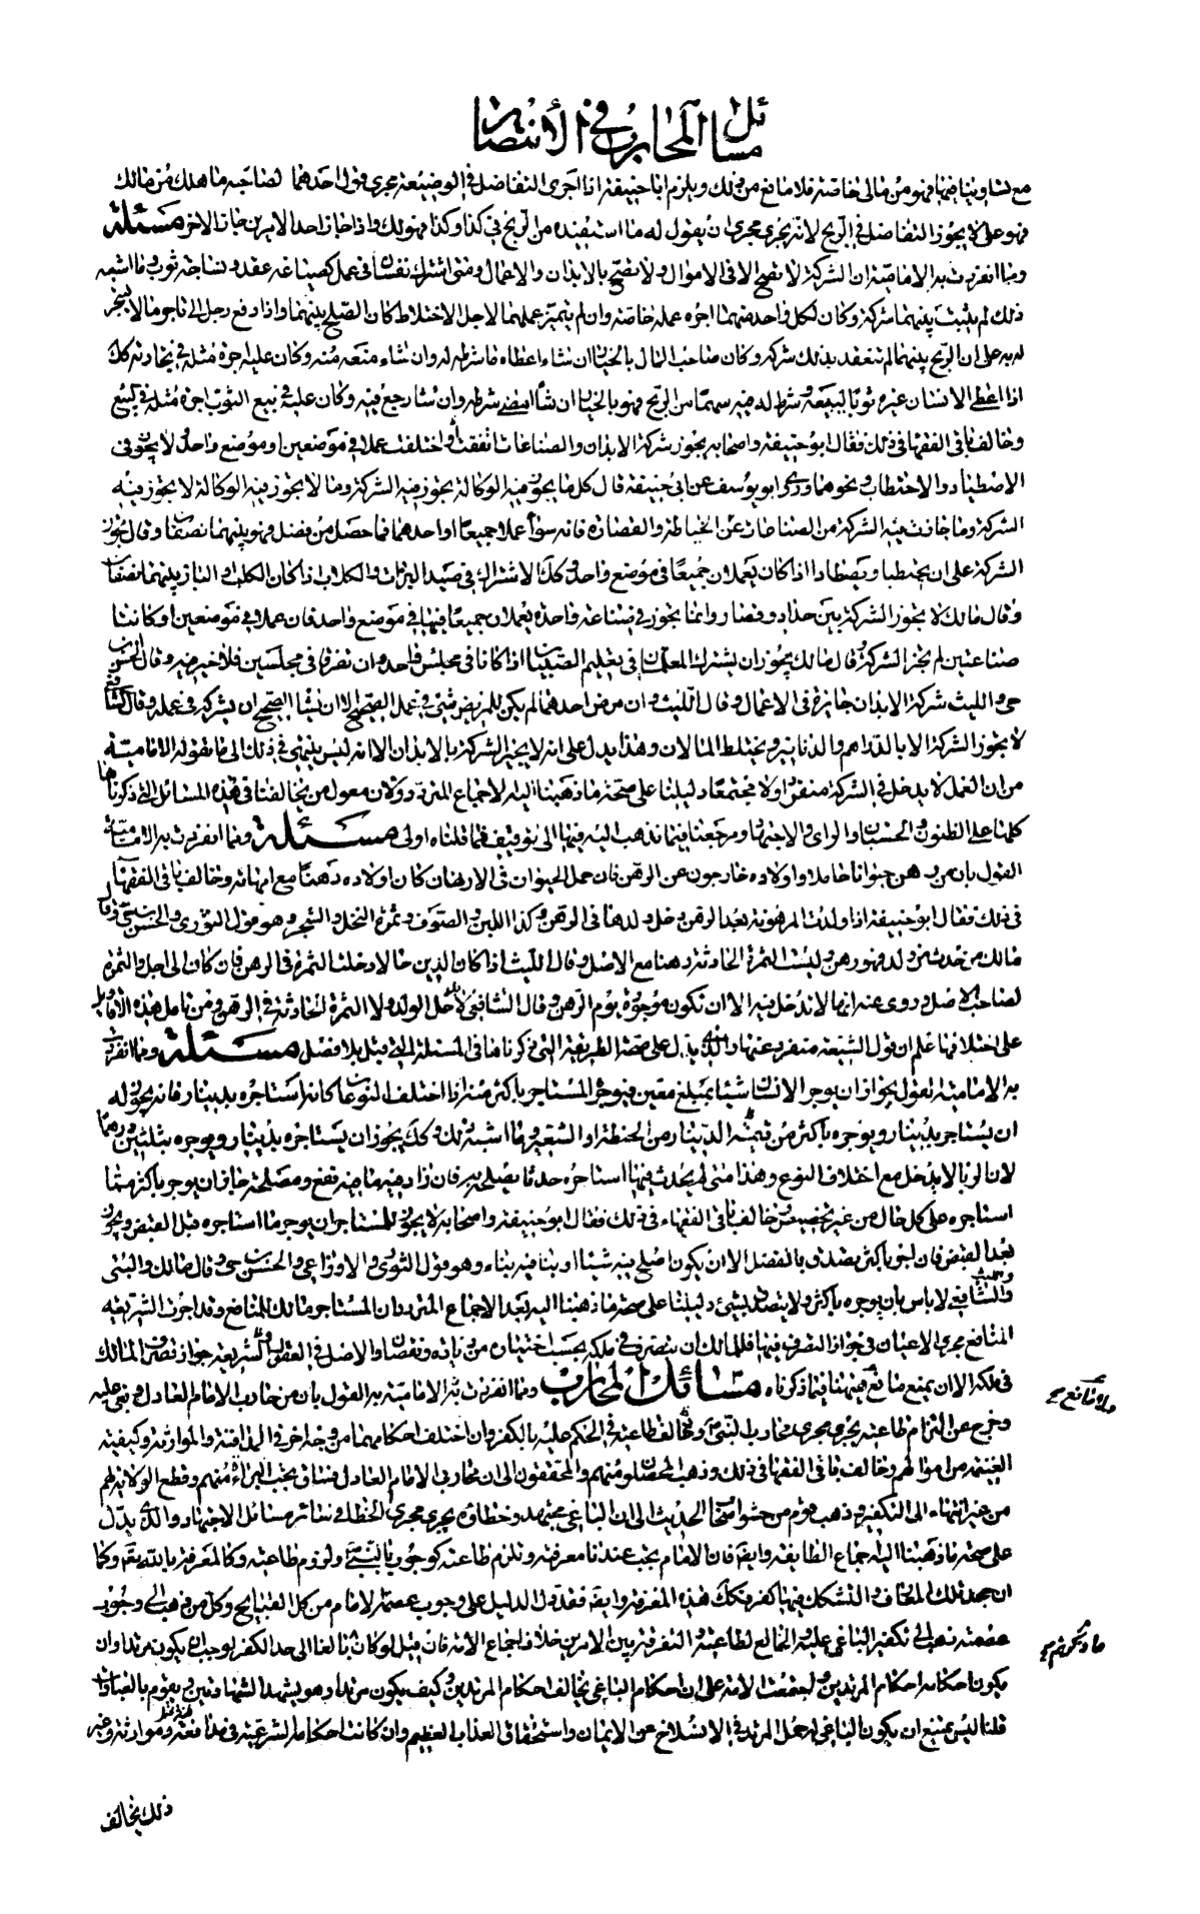 مسائل المحارب في الأنتصار
مع تساويناضها فهو من مالي خاصة فلا مانع من ذلك ويلزم ابا حنيفة اذا اجرى التفاضل في الوضيعة مجرى قول احدهما لصاحبه ما هلك من مالك
فهو على لا يجوز التفاضل في الربح لانه يجري مجرى ان يقول له ما استفيده من الربح في كذا وكذا فهو لك واذا جاز احد الامرين جاز الاخر مسئلة
ومما انفردت به الامامية ان الشركة لا تصح الا في الاموال ولا تصح بالابدان والاعمال ومتى اشترك نفسان في عمل كصياغة عقد ونساجة ثوب وما اشبه
ذلك لم يثبت بينهما شركة وكان لكل واحد منهما اجرة عمله خاصة وان لم يتميز عملهما لاجل الاختلاط كان الصلح بينهما واذا دفع رجل الى تاجر مالا ليتجر
له به على ان الربح بينهما لم تنعقد بذلك شركة وكان صاحب المال بالخيار ان شاء اعطاه ما شرطه له وان شاء منعه منه وكان عليه اجرة مثله في تجارته كك
اذا اعطى الانسان غيره ثوبا ليبيعه وشرط له فيه سهما من الربح فهو بالخيار ان شاء امضى شرطه وان شاء رجع فيه وكان عليه في بيع الثوب اجرة مثله في البيع
وخالف باقي الفقها في ذلك فقال ابو حنيفة واصحابه يجوز شركة الابدان والصناعات اتفقت او اختلفت عملا في موضعين او موضع واحد ولا يجوز في
الاصطياد والاحتطاب ونحوهما وروى ابو يوسف عن ابي حنيفة قال كل ما يجوز فيه الوكالة يجوز فيه الشركة وما لا يجوز فيه الوكالة لا يجوز فيه
الشركة وما جازت فيه الشركة من الصناعات عن الخياطة والقصارة فانه سواء عملا جميعا او احدهما فما حصل من فضل فهو بينهما نصفان وقال يجوز
الشركة على ان يحتطبا ويصطادا اذا كان يعملان جميعا في موضع واحد وكك الاشتراك في صيد البزات والكلاب اذا كان الكلب او الباز بينهما نصفان
وقال مالك لا يجوز الشركة بين حداد وقصار وانما يجوز في صناعة واحدة يعملان جميعا فيها في موضع واحد فان عملا في موضعين او كانتا
صناعتين لم يجز الشركة وقال مالك يجوز ان يشترك المعلمان في تعليم الصبيان اذا كانا في مجلس واحد وان تفرقا في مجلسين فلا خير فيه وقال الحسن بن
حي والليث شركة الابدان جايزة في الاعمال وقال الليث وان مرض احدهما لم يكن للمريض شيء في عمل الصحيح الا ان يشاء الصحيح ان يشركه في عمله وقال الشافعي
لا يجوز الشركة الا بالدراهم والدنانير ويختلط المالان وهذا يدل على انه لا يجيز الشركة بالابدان الا انه ليس ينتهي في ذلك الى ما تقوله الامامية
من ان العمل لا يدخل في الشركة منفردا ولا مجتمعا دليلنا على صحة ما ذهبنا اليه الاجماع المتردد ولان معول من يخالفنا في هذه المسائل التي ذكرناها
كلها على الظنون والحسبان والراى والاجتهاد ومرجعنا فيما نذهب اليه فيها الى توقيف فما قلناه اولى مسئلة ومما انفردت به الامامية
القول بان من رهن حيوانا حاملا واولاده خارجون عن الرهن فان حمل الحيوان في الارتهان كان اولاده رهنا مع امهاته وخالف باقي الفقها
في ذلك فقال ابو حنيفة اذا ولدت المرهونة بعد الرهن دخل ولدها في الرهن وكذا اللبن والصوف وثمرة النخل والشجر وهو قول الثوري والحسن بن حي وقال
مالك من حدث من ولد فهو رهن وليست الثمرة الحادثة رهنا مع الاصل وقال الليث اذا كان الدين حالا دخلت الثمرة في الرهن فان كان الى اجل والثمرة
لصاحب الاصل وروى عنه انها لا تدخل فيه الا ان تكون موجودة يوم الرهن وقال الشافعي لا يدخل الولد ولا الثمرة الحادثة في الرهن ومن تامل هذه الاقاويل
على اختلافها علم ان قول الشيعة منفرد عنها والذي يدل على صحة الطريقة التي ذكرناها في المسئلة التي قبل بلا فصل مسئلة ومما انفردت
به الامامية القول بجواز ان يوجر الانسان شيئا بمبلغ معين فيوجره المستاجر باكثر منه اذا اختلف النوعان كانه استاجره بدينار فانه يجوز له
ان يستاجر بدينار ويوجره باكثر من قيمة الدينار من الحنطة او الشعير وما اشبه ذلك وكك يجوز ان يستاجره بدينار ويوجره بثلثين درهما
لان الربا لا يدخل مع اختلاف النوع وهذا متى لم يحدث فيها استاجره حدثا يصلح به فان زاد فيها فيه نفع ومصلحة جاز ان يوجر باكثر مما
استاجره على كل حال من غير تخصيص وخالف باقي الفقهاء في ذلك فقال ابو حنيفة واصحابه لا يجوز للمستاجر ان يوجر ما استاجره قبل القبض ويجوز
بعد القبض فان اجره باكثر تصدق بالفضل الا ان يكون اصلح فيه شيئا او بنا فيه بناء وهو قول الثوري والاوزاعي والحسن بن حي وقال مالك والبتي
والشافعي لا باس بان يوجره باكثر ولا يتصدق بشيء دليلنا على صحة ما ذهبنا اليه بعد الاجماع المتردد ان المستاجر مالك للمنافع وقد اجرت الشريعة
المنافع مجرى الاعيان في جواز التصرف فيها فللمالك ان يتصرف في ملكه بحسب اختياره من زيادة ونقصان والاصل في العقول والشريعة جواز تصرف المالك
في ملكه الا ان يمنع مانع فيهنا فيما ذكرناه مسائل المحارب ومما انفردت به الامامية به القول بان من حارب الامام العادل وبغى عليه
وخرج عن التزام طاعته يجري مجرى محارب النبي ص وخالف طاعته في الحكم عليه بالكفر وان اختلف احكامهما من وجه اخر في المدافنة والموارثة وكيفية
الغنيمة من اموالهم وخالف باقي الفقها في ذلك وذهب المحصلون منهم والمحققون الى ان محاربي الامام العادل فساق يجب البراءة منهم وقطع الولاية لهم
من غير انتهاء الى التكفير وذهب قوم من حشو اصحاب الحديث الى ان الباغي مجتهد وخطاؤه يجري مجرى الخطا في سائر مسائل الاجتهاد والذي يدل
على صحة ما ذهبنا اليه اجماع الطايفة وايضا فان الامام يجب عندنا معرفته وتلزم طاعته كوجوب النبي ص ولزوم طاعته وكالمعرفة بالله تعه وكما
ان جحد تلك المعارف والتشكك فيها كفر فكك هذه المعرفة وايضا فقد دل الدليل على وجوب عصمة الامام من كل القبايح وكل من ذهب الى وجوب
عصمته ذهب الى تكفير الباغي عليه والخالع لطاعته والتفرقة بين الامرين خلاف اجماع الامة فان قيل لو كان ما ذكرتم بالغا الى حد الكفر لوجب ان يكون مرتدا وان
يكون احكامه احكام المرتدين واجمعت الامة على ان احكام الباغي تخالف احكام المرتدين وكيف يكون مرتدا وهو يشهد الشهادتين ويقوم بالعبادات
قلنا ليس يمتنع ان يكون الباغي له حكم المرتد في الانسلاخ عن الايمان واستحقاق العذاب العظيم وان كانت احكامه الشرعية في مدافنته وموارثته وغير
ذلك يخالف